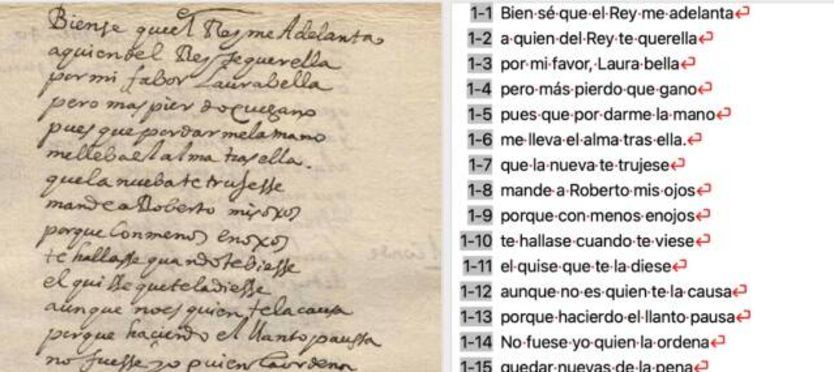 Biense queel Rey me Adelanta
aquiendel Rey sequerella
por mi fabor Laurabella
pero mas pier do que gano
pues que pordarmelamano
mellebaelalma tras ella.
quelanuebate trujesse
mande a Roberto mis oxos
porque conmenos enoxos
te hallasse quandotebiesse
el quisse queteladiesse
aunque noes quien telacausa
porque haciendo el llanto paussa
no fuesse yo quien laordena
1-1 Bien sé que el Rey me adelanta
1-2 a quien del Rey te querella
1-3 por mi favor, Laura bella
1-4 pero más pierdo que gano
1-5 pues que por darme la mano
1-6 me lleva el alma tras ella.
1-7 que la nueva te trujese
1-8 mande a Roberto mis ojos
1-9 porque con menos enojos
1-10 te hallase cuando te viese
1-11 el quise que te la diese
1-12 aunque no es quien te la causa
1-13 porque hacierdo el llanto pausa
1-14 No fuese yo quien la ordena
1-15 quedar nuevas de la pena